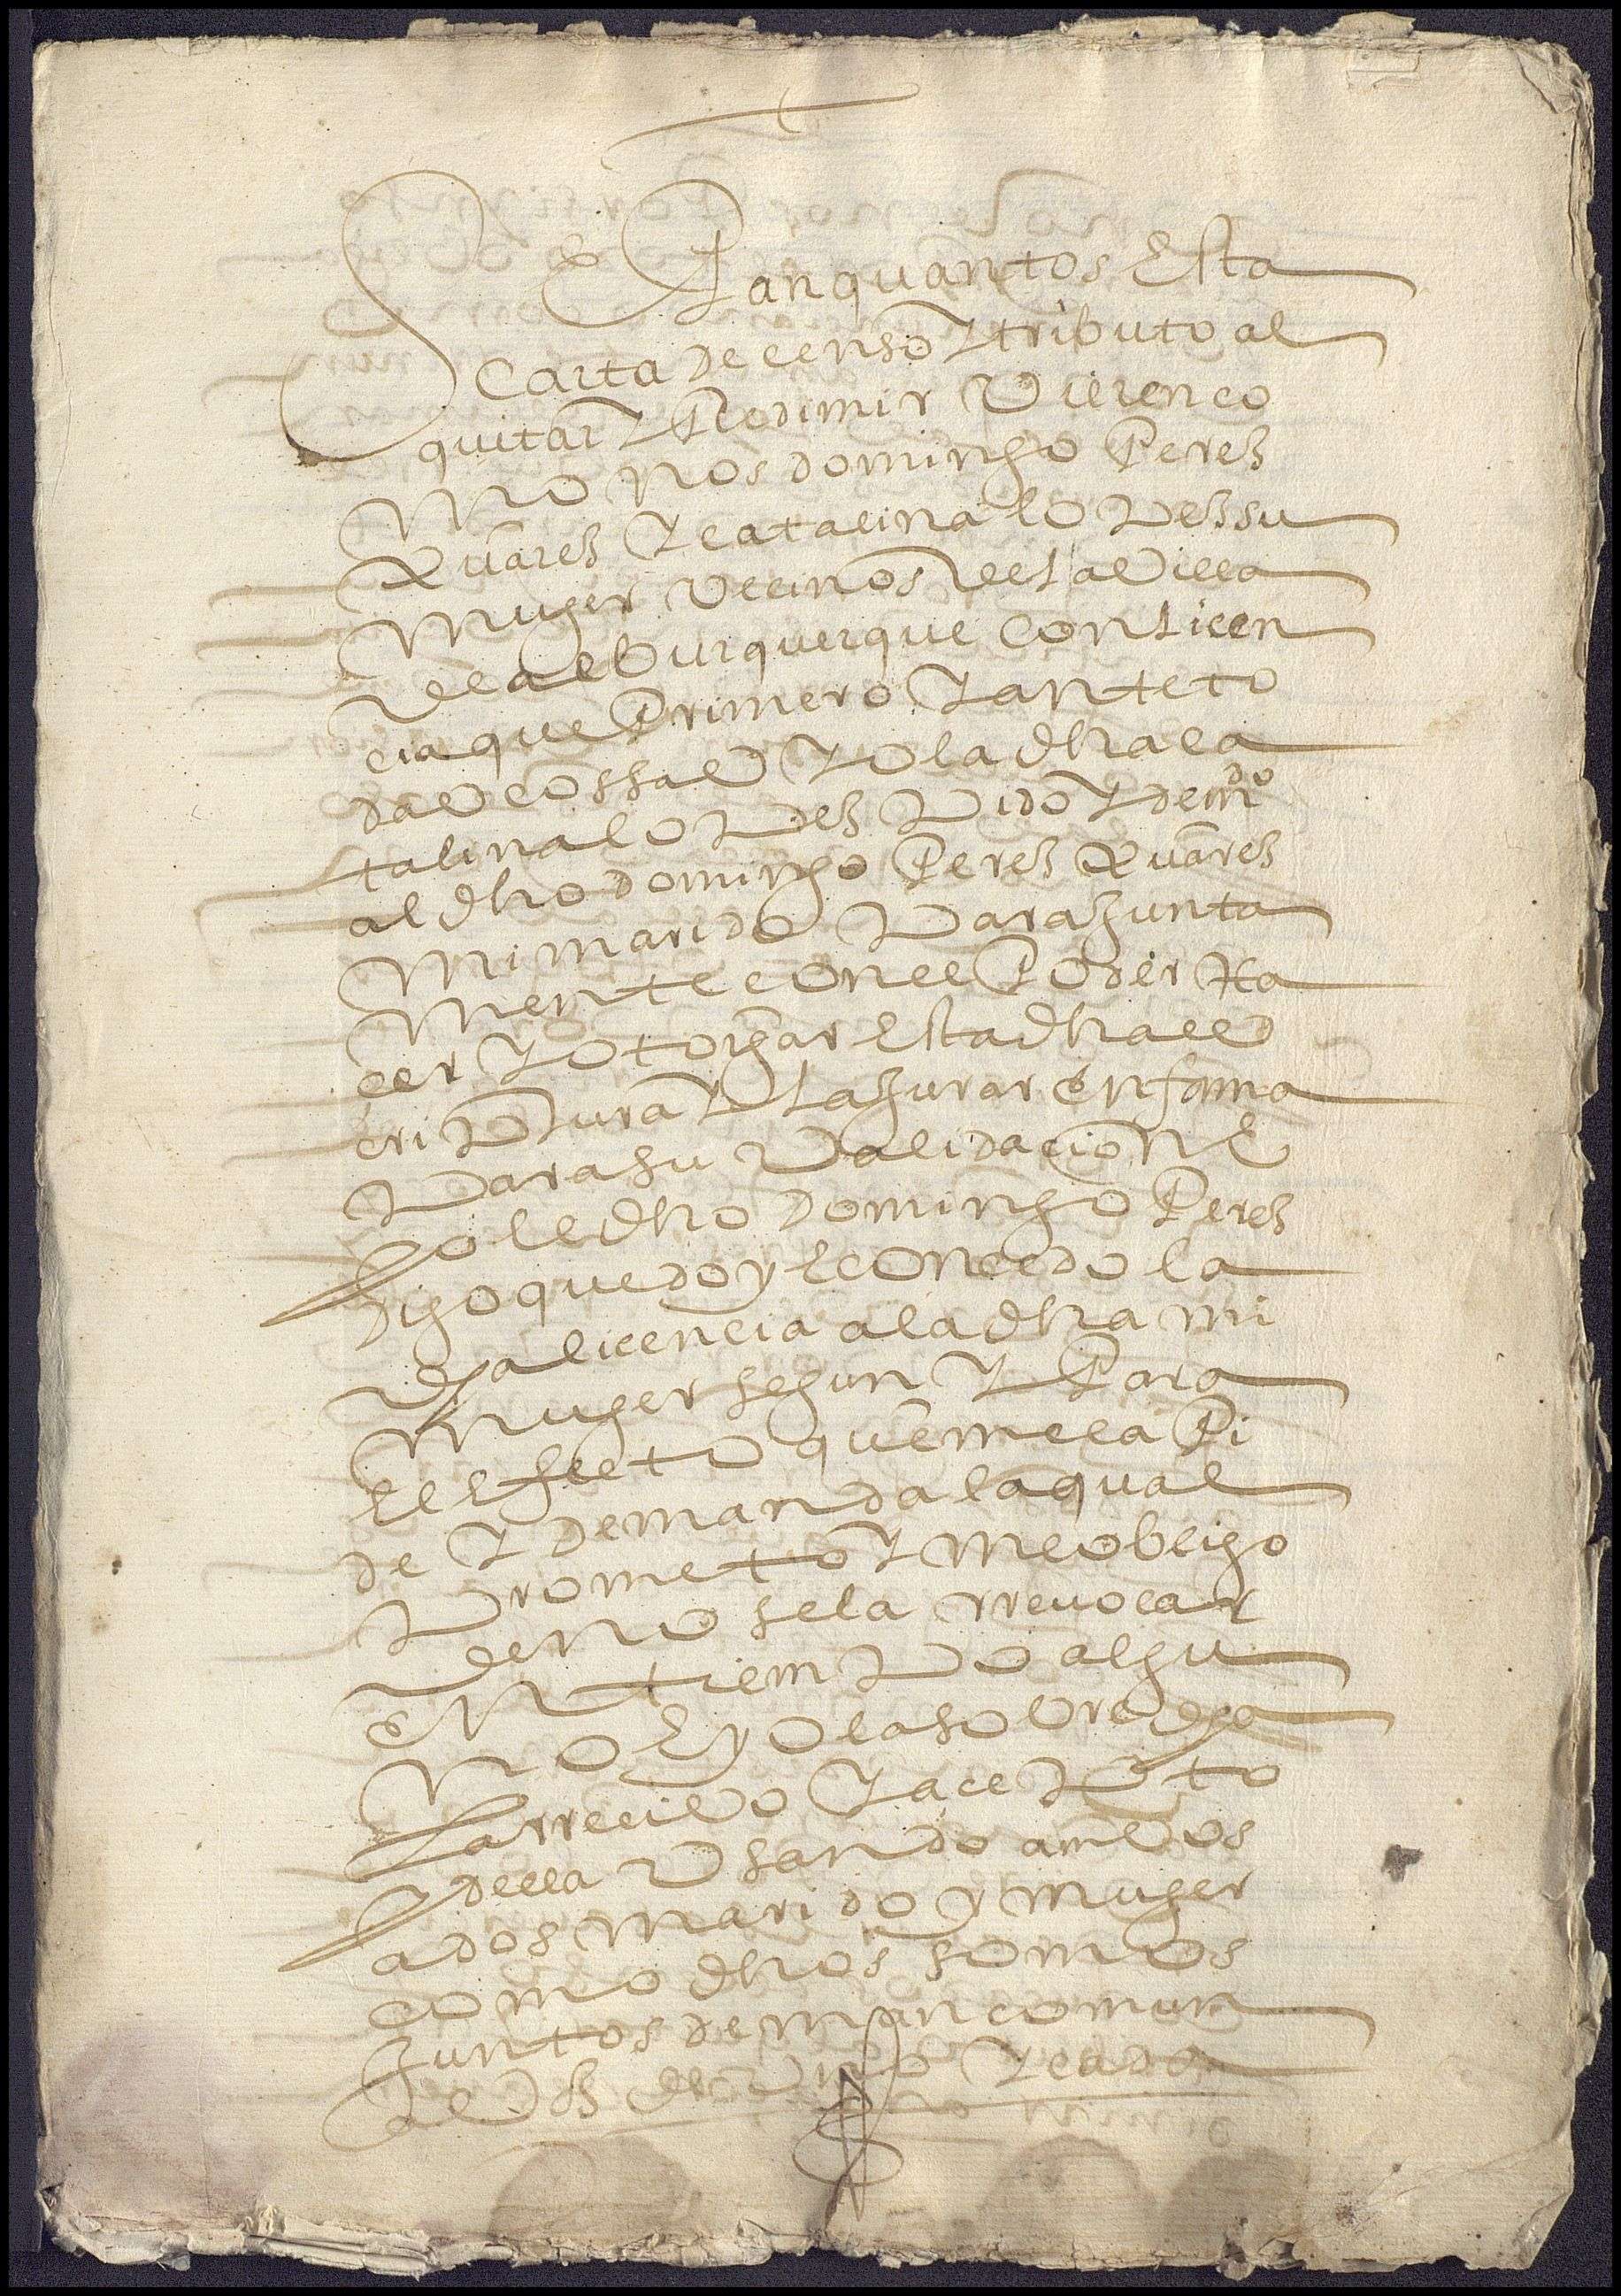 Sepan quantos esta
carta de censo y tributo al
quitar y Redimir vieren co
mo nos domingo Perez
xuarez y catalina lopez su
muger vecinos de la villa
de alburquerque con licen
cia que Primero y ante to
das cossas yo la dha ca
talina lopez pido y demdo
al dho domingo Perez xuarez
mi marido para junta
mente con el Poder ha
cer y otorgar esta dha es
criptura y la jurar en forma
para su validacion e
yo el dho domingo Perez
digo que doy e concedo la
dha licencia a la dha mi
muger segun y Para
el efecto que me la Pi
de y demanda la qual
prometo y me obligo
de no se la rrevocar
en tiempo algu
no e yo la sobre dha
la rrecivo y acepto
y della usando ambos
a dos marido y muger
como dhos somos
juntos de mancomun
a voz de uno y cada